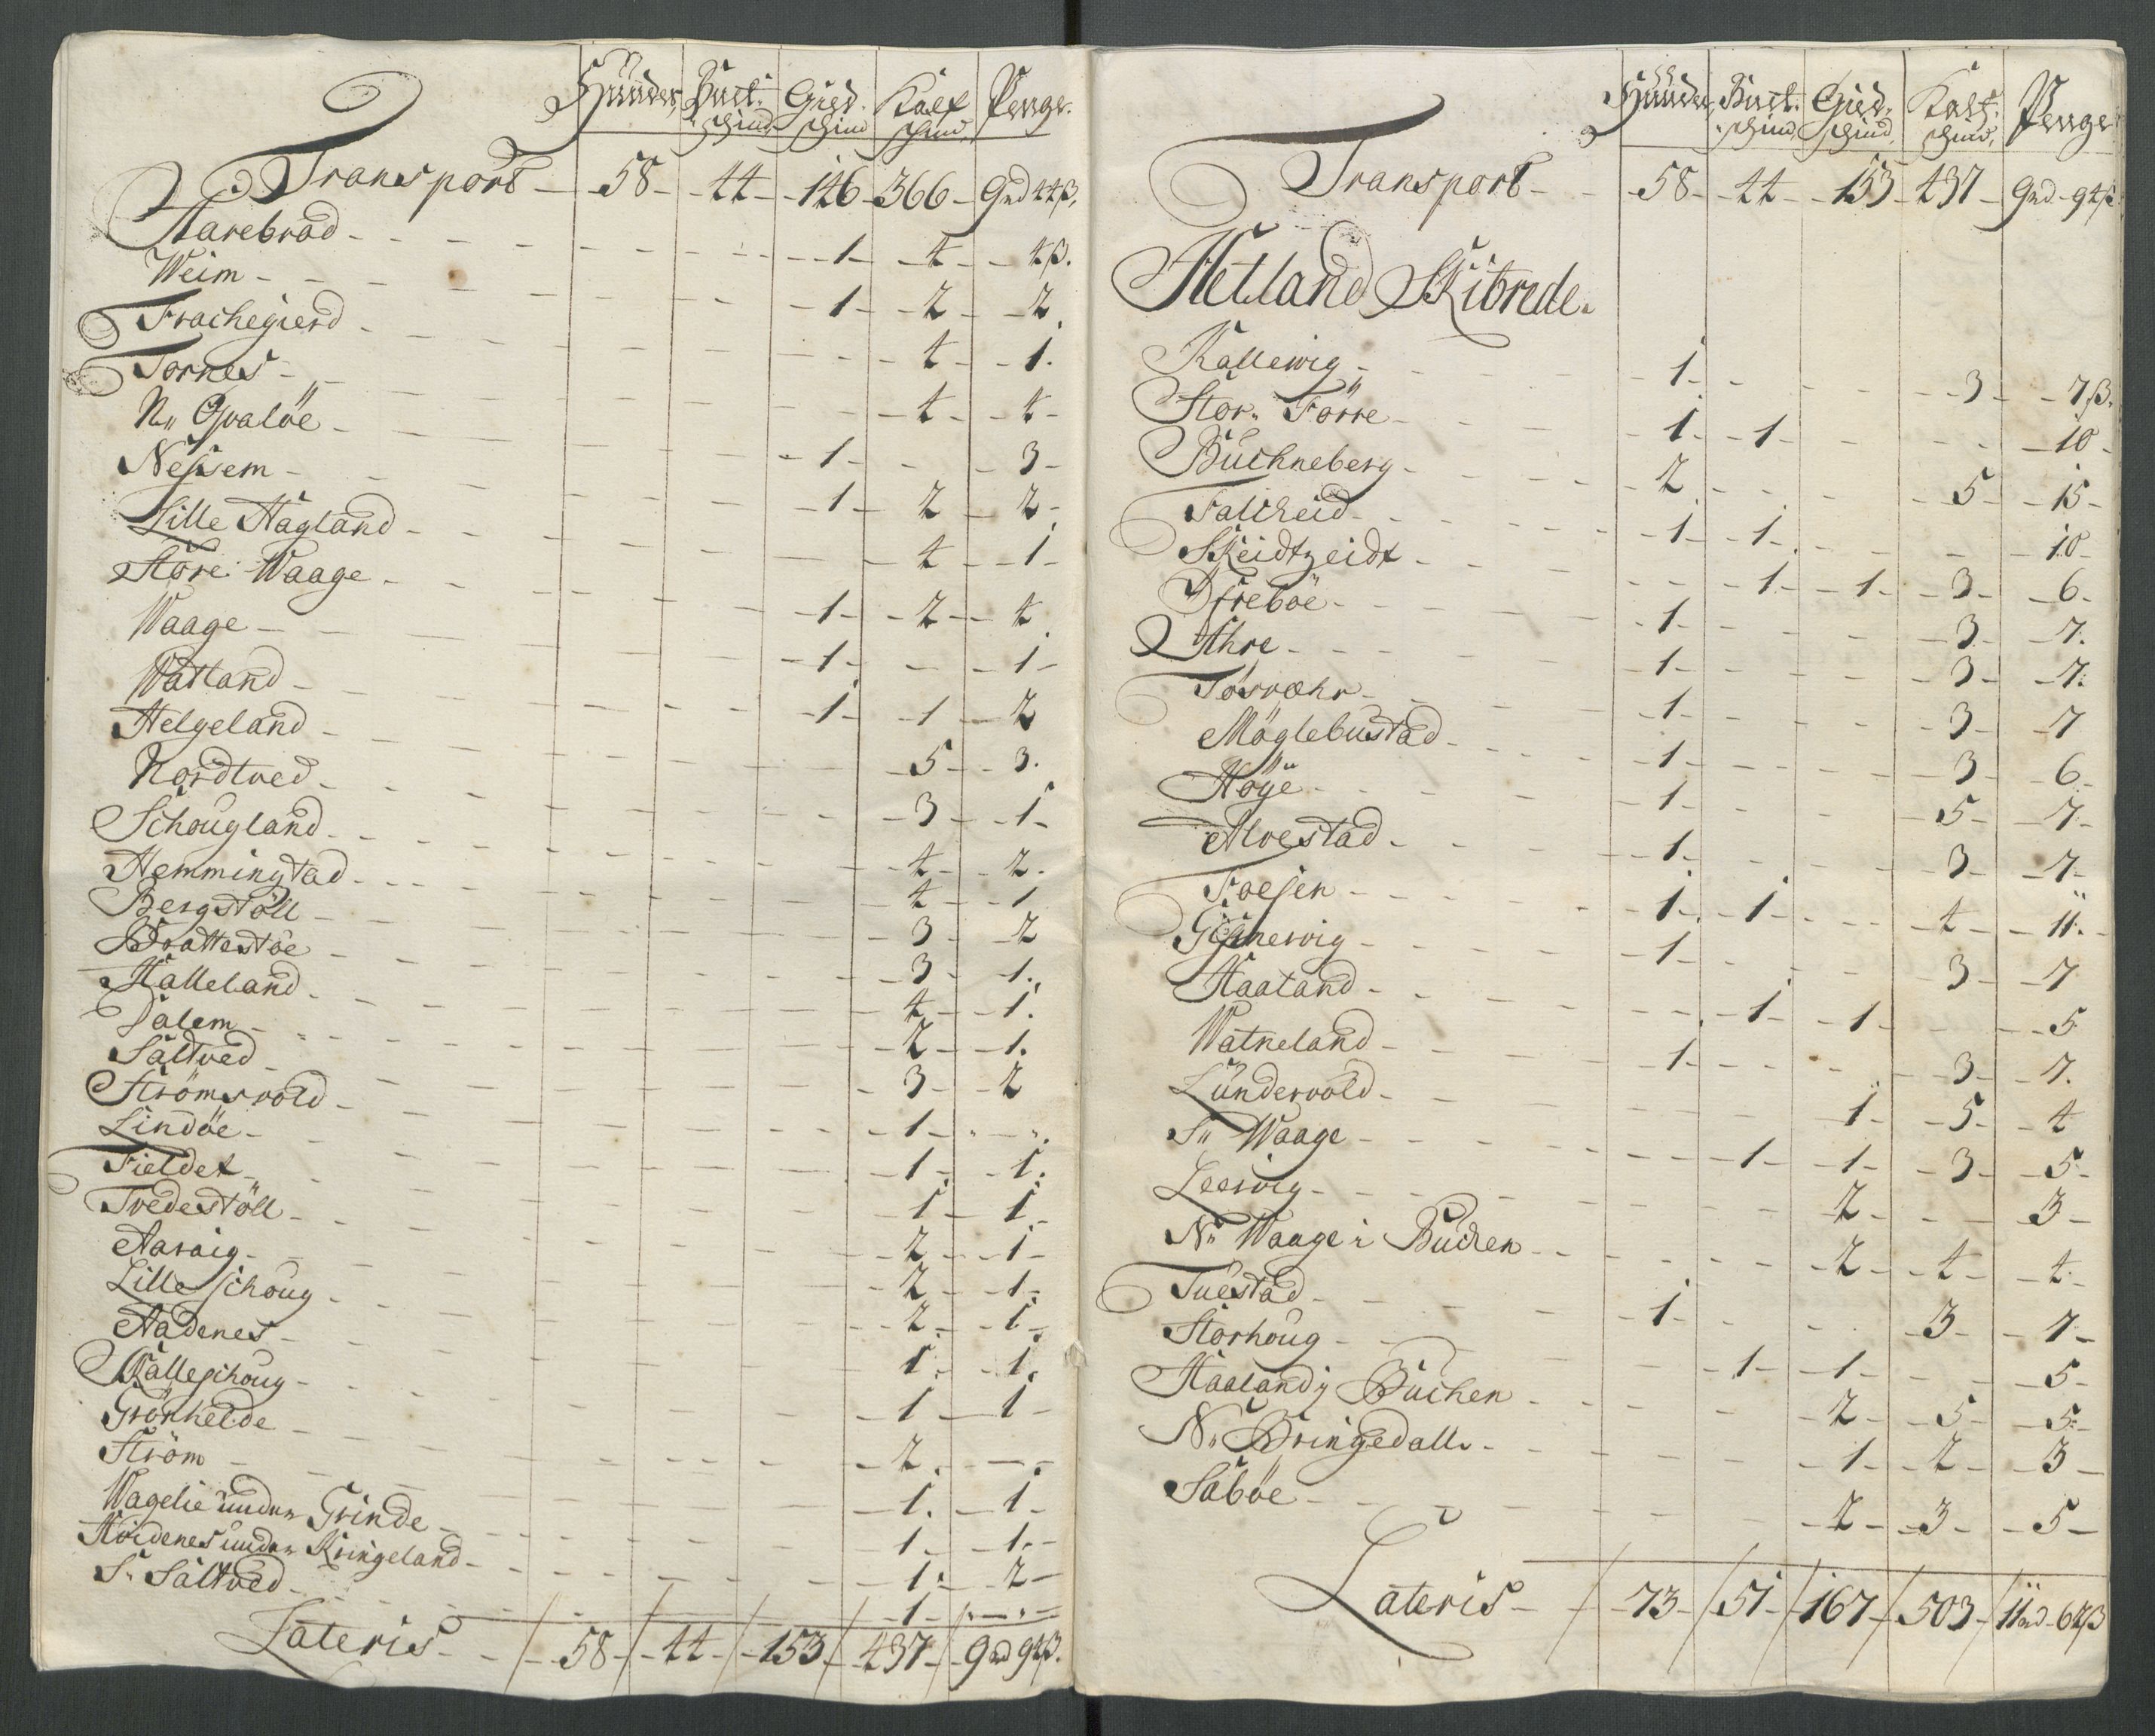 Hünder, Buck: schind Gied: schind Kalf schind Penge.
Transport - 58 - 44 - 146 - 366 - 9rd 44β.
Aarebrod - 1 - 4 - 4β.
Weim - 1 - 2 - 2
Frachegierd - 4 - 1.
Tornes - 4 - 4 -
N„ Qvalöe - 1 - - 3 -
Nessem - 1 - 2 - 2 -
Lille Hagland - 4 - 1 -
Store Waage - 1 - 2 - 4
Waage - 1 - - 1 -
Watland - 1 - 1 - 2
Helgeland - 5 - 3.
Nordtved - 3 - 1 -
Schougland - 4 - 2.
Hemmingstad - 4 - 1
Bergstöll - 3 - 2
Brattestöe - 3 - 1.
Halleland - 4 - 1.
Dalem - 2 - 1.
Saltved - 3 - 2
Strömsvold - 1 - „ - „.
Lindöe - 1 - 1.
Fieldet - 1 - 1
Tvedestöll - 2 - 1 -
Aarvig - 2 - 1 -
Lille Schoug - 2 - 1 -
Aadenes - 1 - 1.
Kalleschoug - 1 - 1 -
Grönhelde - 2 - - .
Ström - 1. - 1 -
Wagelie under Grinde - 1 - 1. -
Hoidenes under Kringeland - 1 - 2 -
S. Saltved - 1 - „ - „ -
Lateris - 58 - 44 - 153 - 437 - 9rd 94β.
Hünder, Buct. schind Gied. schind, Kalf. schind, Penge
Transport - 58 - 44 - 153 - 437 - 9rd - 94β
Hetland Skibrede.
Kallewig - 1 - - - 3 - 7β.
Stor„ Förre - 1 - 1 - - - 10 -
Buchneberg - 2 - - - 5 - 15 -
Falcheid - 1 - 1 - - - 10 -
Skeidtzeidt - 1 - 1 - 3 - 6 -
Ifreböe - 1 - - - 3 - 7.
Ahre - 1 - - - 3 - 7.
Tösvæhr - 1 - - - 3 - 7
Möglebustad - 1 - - - 3 - 6 -
Höye - 1 - - - 5 - 7 -
Alvestad - 1 - - - 3 - 7 -
Foesen - 1 - 1 - - 4 - 11. -
Gismervig - 1 - - - 3 - 7
Haaland - 1 - 1 - - 5
Watneland - 1 - - - 3 - 7.
Lundervold - 1 - 5 - 4
S„ Waage - 1 - 1 - 3 - 5 -
Leervig - 2 - - 3 -
N„ Waage i Buchen - 2 - 4 - 4 -
Tuestad - 1 - - - 3 - 7 -
Storhoug - 1 - 1 - - 5 -
Haaland i Buchen - 2 - 5 - 5 -
N„ Bringedall - 1 - 2 - 3 -
Saböe - 2 - 3 - 5 -
Lateris - 73 - 51 - 167 - 503 - 11rd - 62β